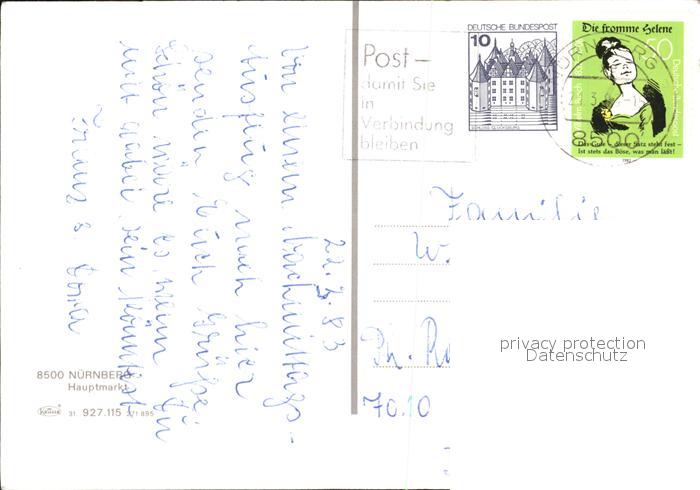 Post –
damit Sie
in
Verbindung
bleiben
DEUTSCHE BUNDESPOST
10
SCHLOSS GLÜCKSBURG
Die fromme Helene
50
Deutsche Bundespost
Das Gute – dieser Satz steht fest –
Ist stets das Böse, was man läßt!
8500
22.3.83
Von einem Nachmittags-
Ausflug nach hier
senden Euch Grüße!
Schön wäre es, wenn Du
mit dabei sein könntest
Franz &
Familie
W.
Ph.
70.10
8500 NÜRNBERG
Hauptmarkt
KRÜGER 31 927.115 271 895
privacy protection
Datenschutz